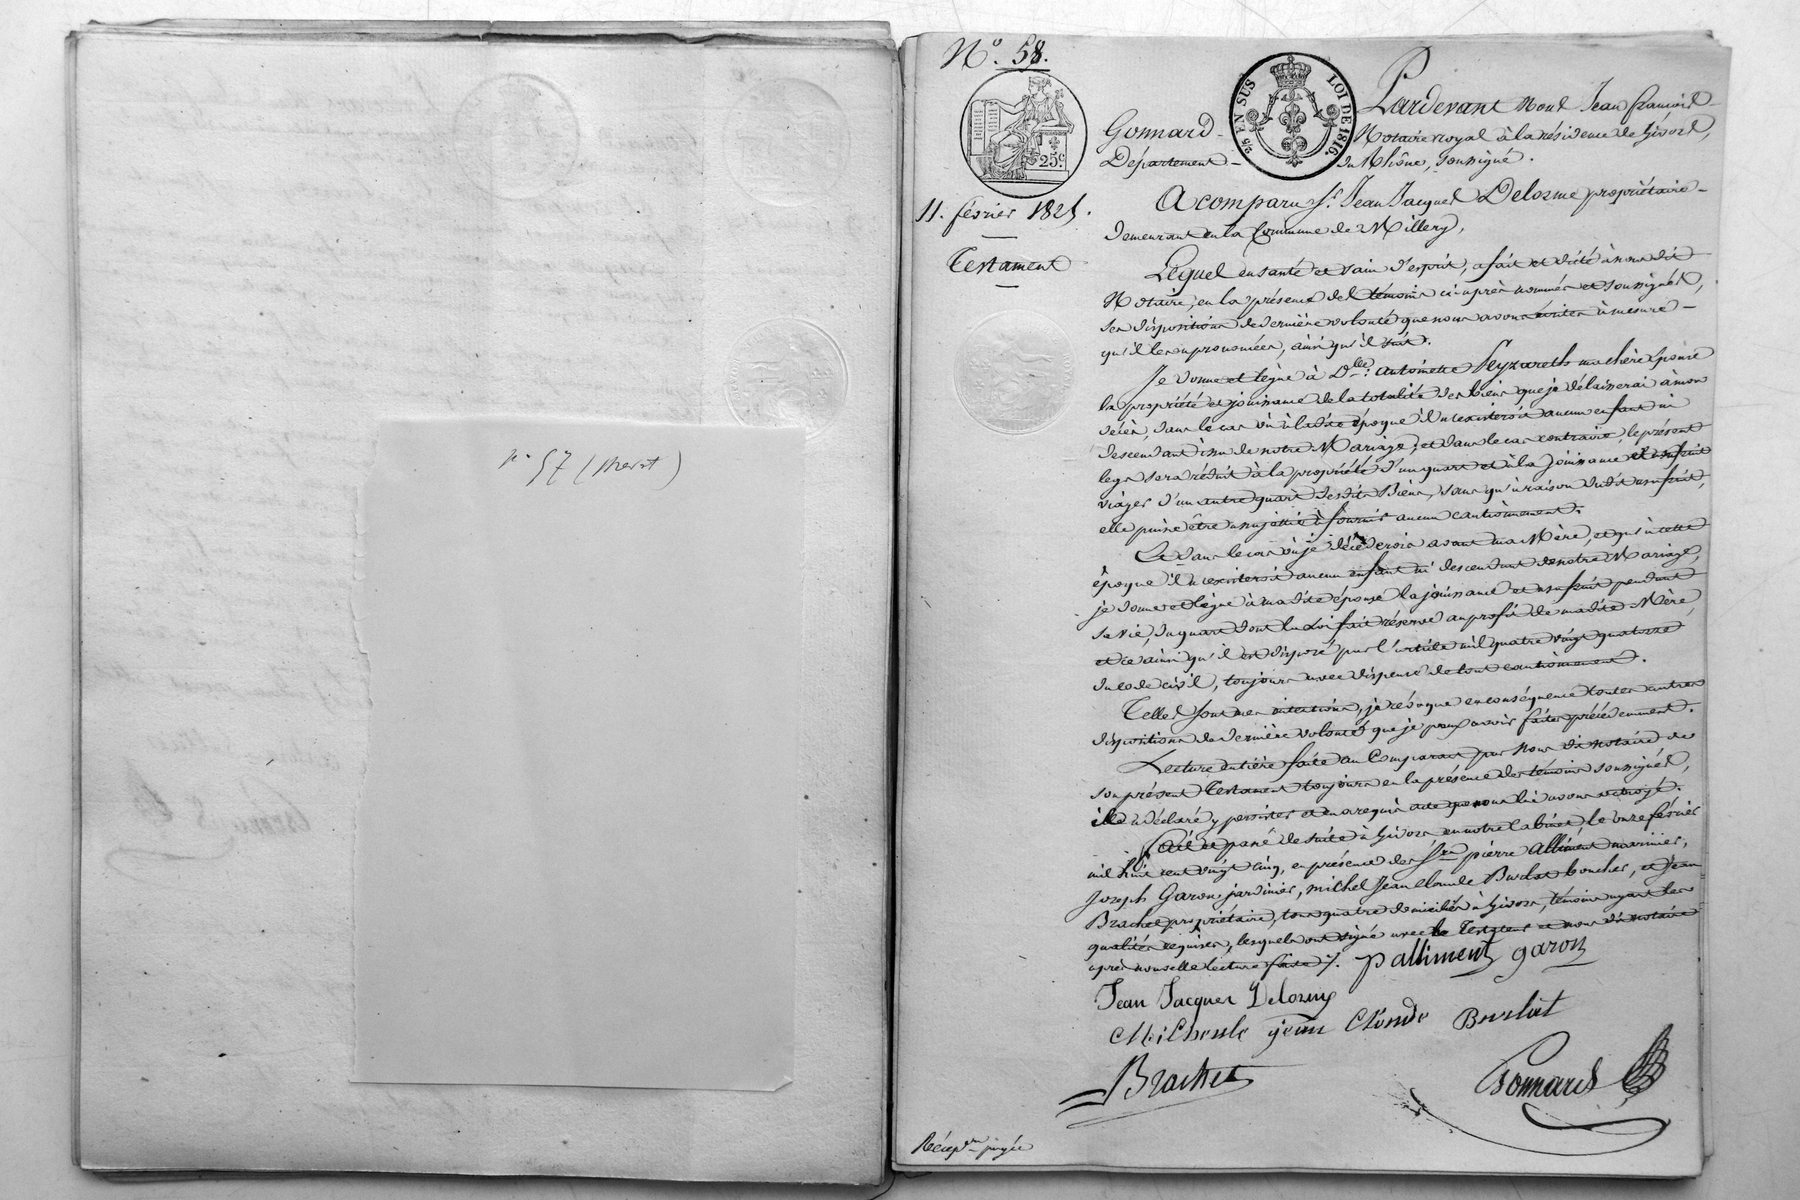 n° 57 (Mevst)
N°. 58.
25 EN SUS LOI DE 1816.
25c
11. février 1825.
Testament
Pardevant nous Jean françois
Gonnard Notaire royal à la résidence de Givors,
Département du Rhône, soussigné.
A comparu Sr. Jean Jacques Delorme propriétaire
demeurant en la Commune de Millery,
Lequel en santé et sain d'esprit, a fait et dicté à nous dit
Notaire, en la présence des témoins ci-après nommés et soussignés,
ses dispositions de dernière volonté que nous avons écrites à mesure
qu'il les a prononcées, ainsi qu'il suit.
Je donne et lègue à Dlle. antoinette Peyzareth ma chère Epouse
la propriété et jouissance de la totalité des biens que je délaisserai à mon
décès, dans le cas où à ladite époque il n'existeroit aucun enfant ni
descendant issu de notre Mariage; et dans le cas contraire, le présent
legs sera réduit à la propriété d'un quart et à la jouissance et usufruit
viager d'un autre quart desdits Biens, sans qu'à raison dudit usufruit,
elle puisse être assujettie à fournir aucun cautionnement.
Et dans le cas où je décéderois avant ma Mère, et qu'à cette
époque il n'existeroit aucun enfant ni descendant de notre Mariage,
je donne et lègue à madite épouse la jouissance et usufruit pendant
sa vie, du quart dont la Loi fait réserve au profit de madite Mère,
et ce ainsi qu'il est disposé par l'article mil quatre vingt quatorze
du code civil, toujours avec dispense de tout cautionnement.
Telles sont mes intentions, je révoque en conséquence toutes autres
dispositions de dernière volonté que je peux avoir faites précédemment.
Lecture entière faite au Comparant par nous dit notaire de
son présent Testament toujours en la présence des témoins soussignés,
il a déclaré y persister et en a requis acte que nous lui avons octroyé.
Fait et passé de suite à Givors en notre Cabinet, le onze février
mil huit cent vingt cinq, en présence des Srs. pierre Alliment marinier,
Joseph Garon jardinier, michel Jean claude Burlat boucher, et Jean
Brachet propriétaire, tous quatre domiciliés à Givors, témoins ayant les
qualités requises, lesquels ont signé avec le Testateur et nous dit notaire
après nouvelle lecture faite ./. p alliment garon
Jean Jacques Delorme
Micheule jean Claude Burlat
Brachet Gonnard
Récepon payée